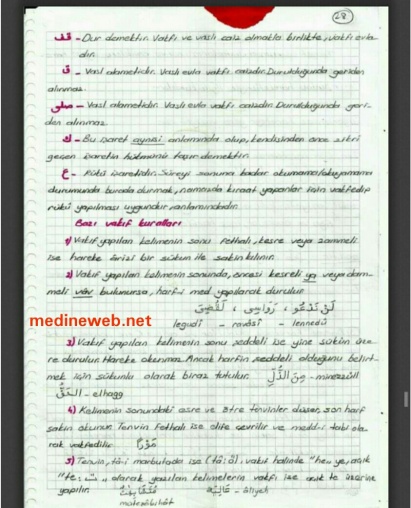 28
قف - Dur demektir. Vakfı ve vaslı caiz olmakla birlikte, vakfı evla
dır.
ق - Vasl alametidir. Vaslı evla vakfı caizdir. Durulduğunda geriden
alınmaz.
صلى - Vasl alametidir. Vaslı evla vakfı caizdir. Durulduğunda geri-
den alınmaz.
ك - Bu işaret aynısı anlamında olup, kendisinden önce zikri
geçen işaretin hükmünü taşır demektir.
ع - Rükû işaretidir. Sûreyi sonuna kadar okumama/okuyamama
durumunda burada durmak, namazda kıraat yapanlar için vakfedip
rükû yapılması uygundur, anlamındadır.
Bazı vakıf kuralları
1) Vakıf yapılan kelimenin sonu fethalı, kesre veya zammeli
ise hareke ârizi bir sükun ile sakin kılınır.
2) Vakıf yapılan kelimenin sonunda, öncesi kesreli ya veya dam-
meli vâv bulunursa, harf-i med yapılarak durulur.
لَنْ نَدْعُوَ ، رَوَاسِىَ ،
legudî - ravâsî - lennedû
medineweb.net
3) Vakıf yapılan kelimenin sonu şeddeli ise yine sükûn üze
re durulur. Hareke okunmaz. Ancak harfin şeddeli olduğunu belirt-
mek için sükunlu olarak biraz tutulur. مِنَ الذُّلِّ - minezzüll
اَلْحَقُّ - elhagg
4) Kelimenin sonundaki esre ve ötre tenvinler düşer, son harf
sakin okunur. Tenvin fethalı ise elife çevrilir ve medd-i tabi ola-
rak vakfedilir.
5) Tenvin, tâ-i marbutada ise (tâ: ة), vakıf halinde "he" ye, açık
"te: ت" olarak yazılan kelimelerin vakfı ise açık te üzerine
yapılır. عَالِيَةً - âliyeh